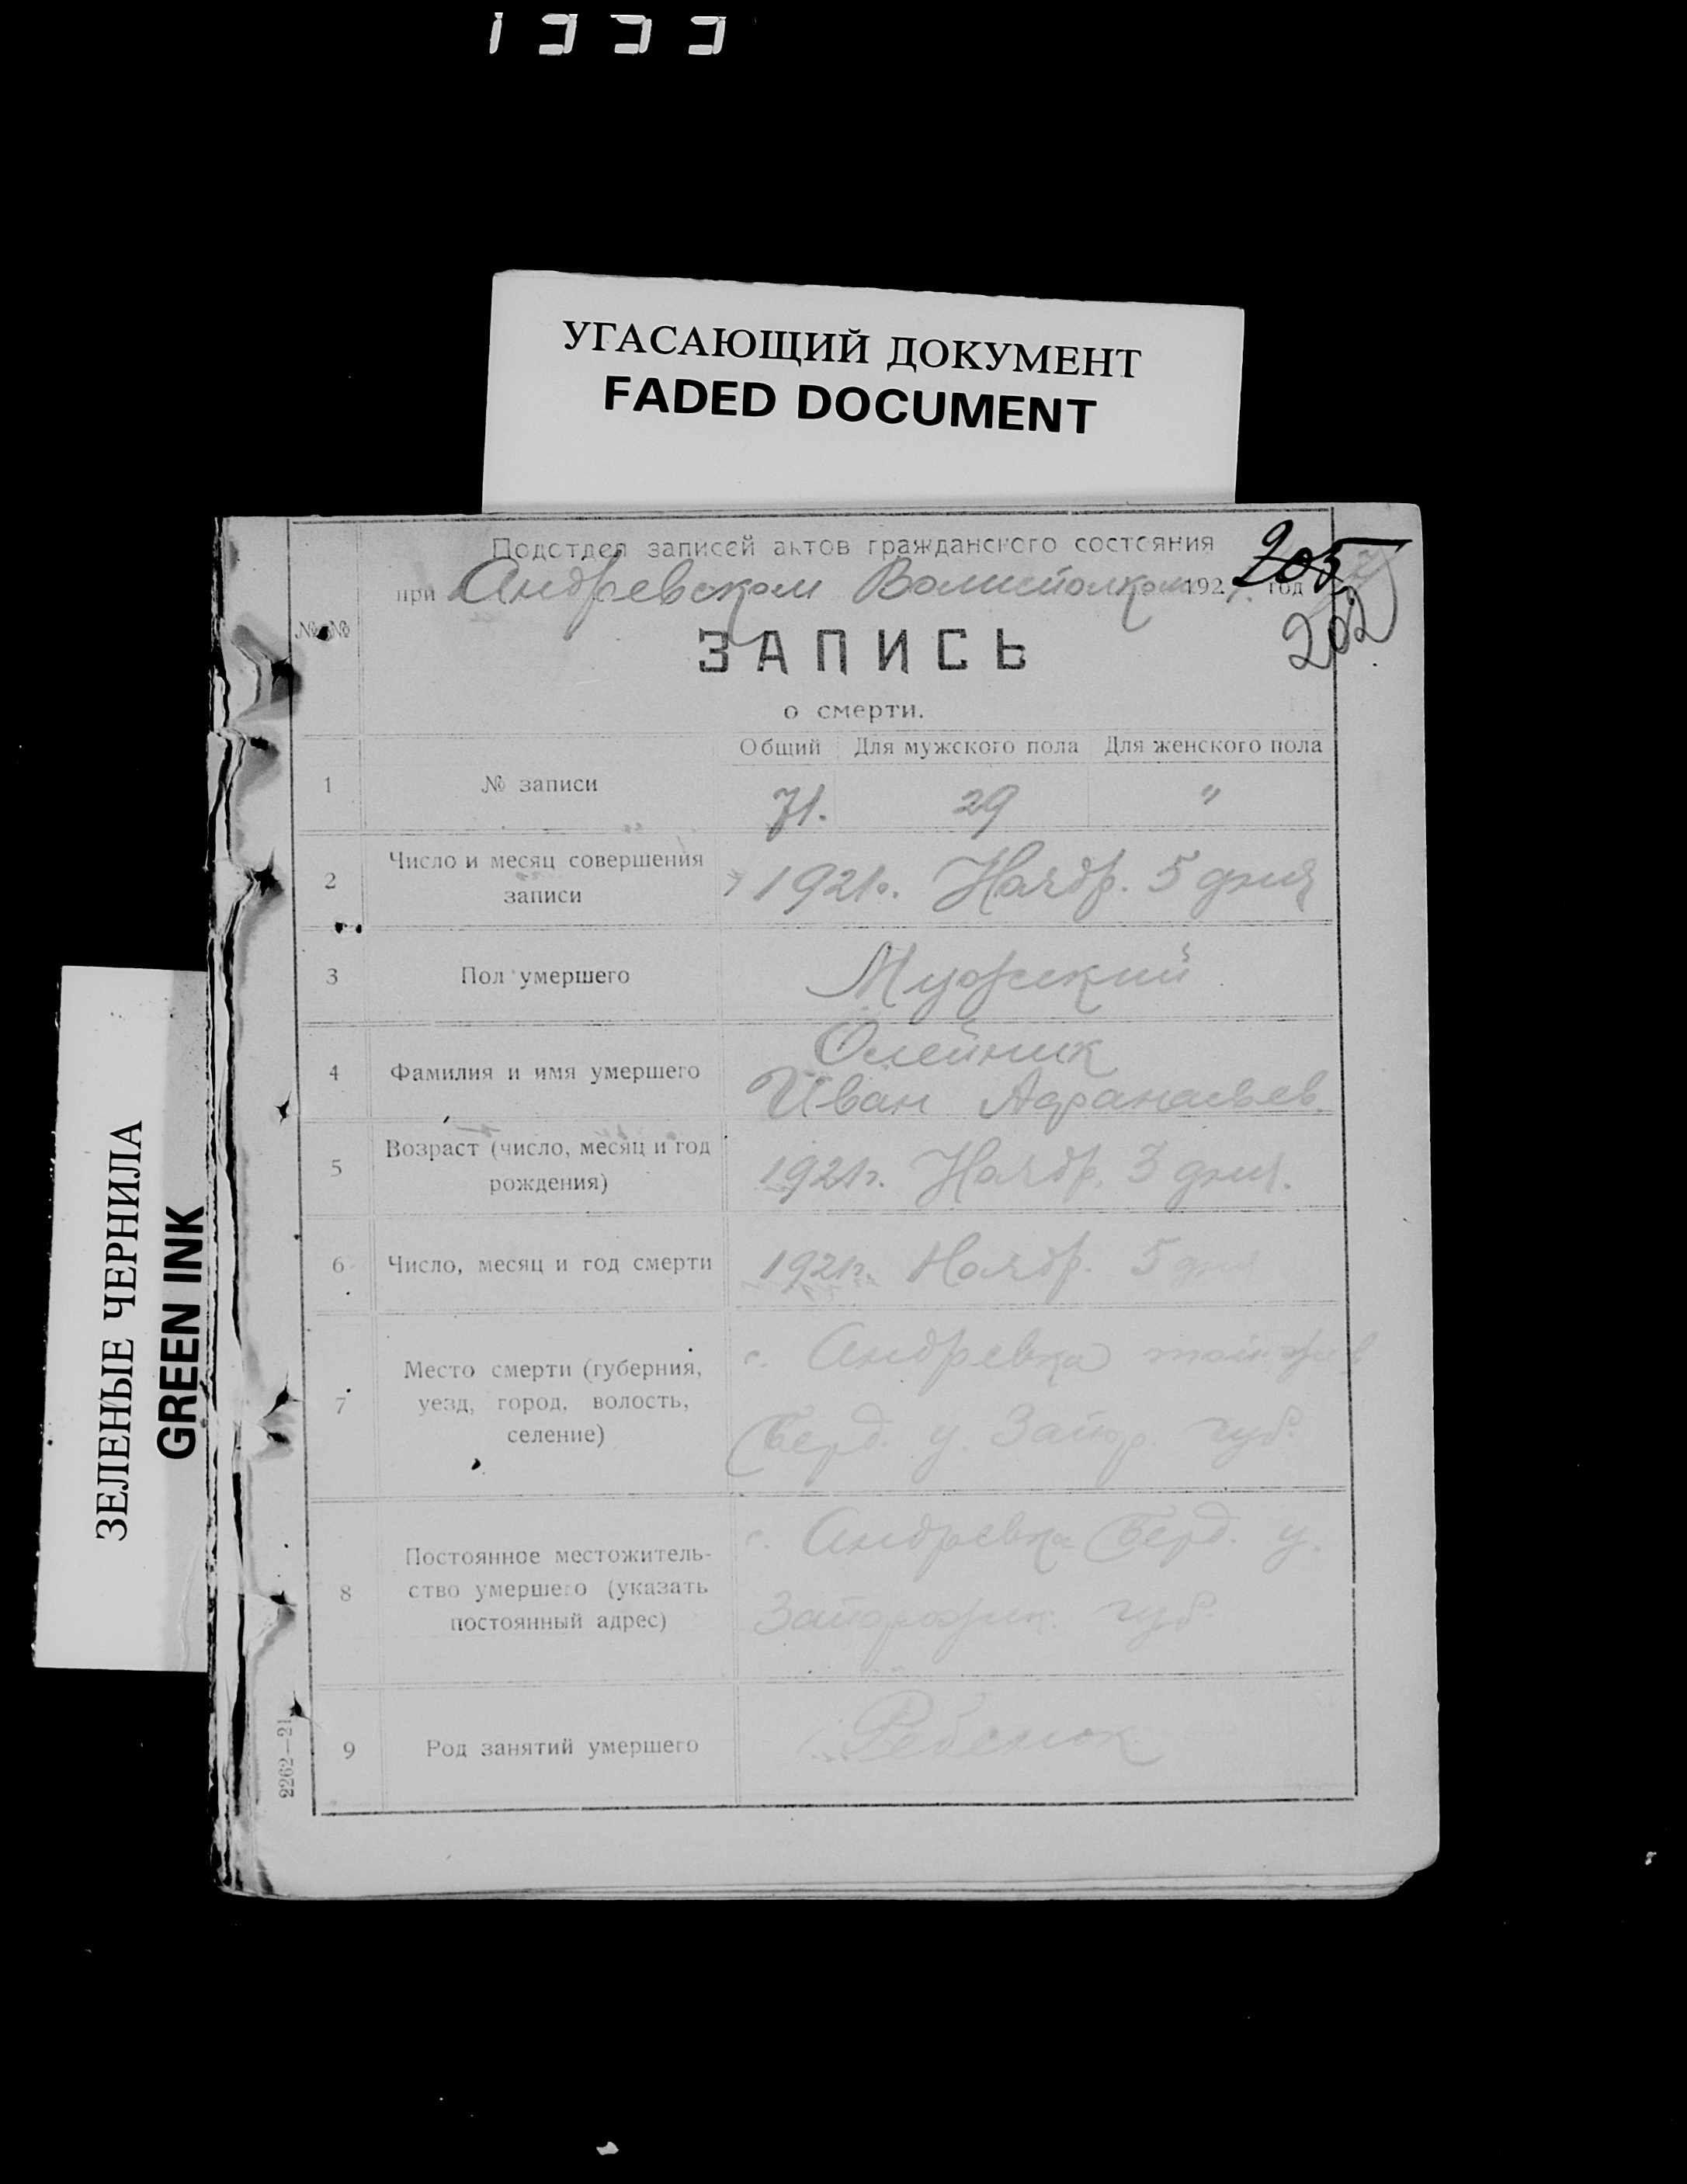 УГАСАЮЩИЙ ДОКУМЕНТ
FADED DOCUMENT
ЗЕЛЕНЫЕ ЧЕРНИЛА
GREEN INK
205
202
Подотдел записей актов гражданского состояния
при Андревском Волисполком 192 год
№ №
ЗАПИСЬ
о смерти.
Общий Для мужского пола Для женского пола
1 № записи 71. 29 "
2 Число и месяц совершения
записи
1921г. Ноябр. 5 дня
3 Пол умершего Мужский
4 Фамилия и имя умершего
Олейник
Иван Афанасьев.
5 Возраст (число, месяц и год
рождения)
1921г. Ноябр. 3 дня.
6 Число, месяц и год смерти 1921г. Ноябр. 5 дня
7 Место смерти (губерния,
уезд, город, волость,
селение)
с. Андревка
Берд. у. Запор. губ.
8 Постоянное местожитель-
ство умершего (указать
постоянный адрес)
с. Андревка Берд. у.
Запорожск. губ.
9 Род занятий умершего Ребенок
2262—21